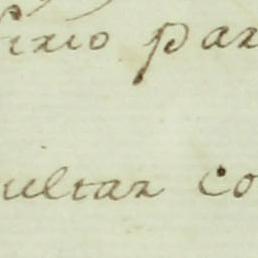 firio par
ultar co